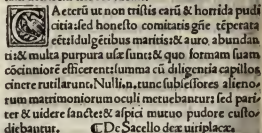 QAeterũ ut non tristis earũ & horrida pudi
citia: sed honesto comitatis gñe tẽperata
eẽt: Idulgẽtibus maritis: & auro abundan
ti: & multa purpura usæ sunt: & quo formam suam
cõcinniorẽ efficerent: summa cũ diligentia capillos
cinere rutilarunt. Nulli.n. tunc subsessores alieno⁊
rum matrimoniorum oculi metuebantur: sed pari⁊
ter & uidere sancte: & aspici mutuo pudore custo⁊
diebantur. De Sacello deæ uiriplacæ.